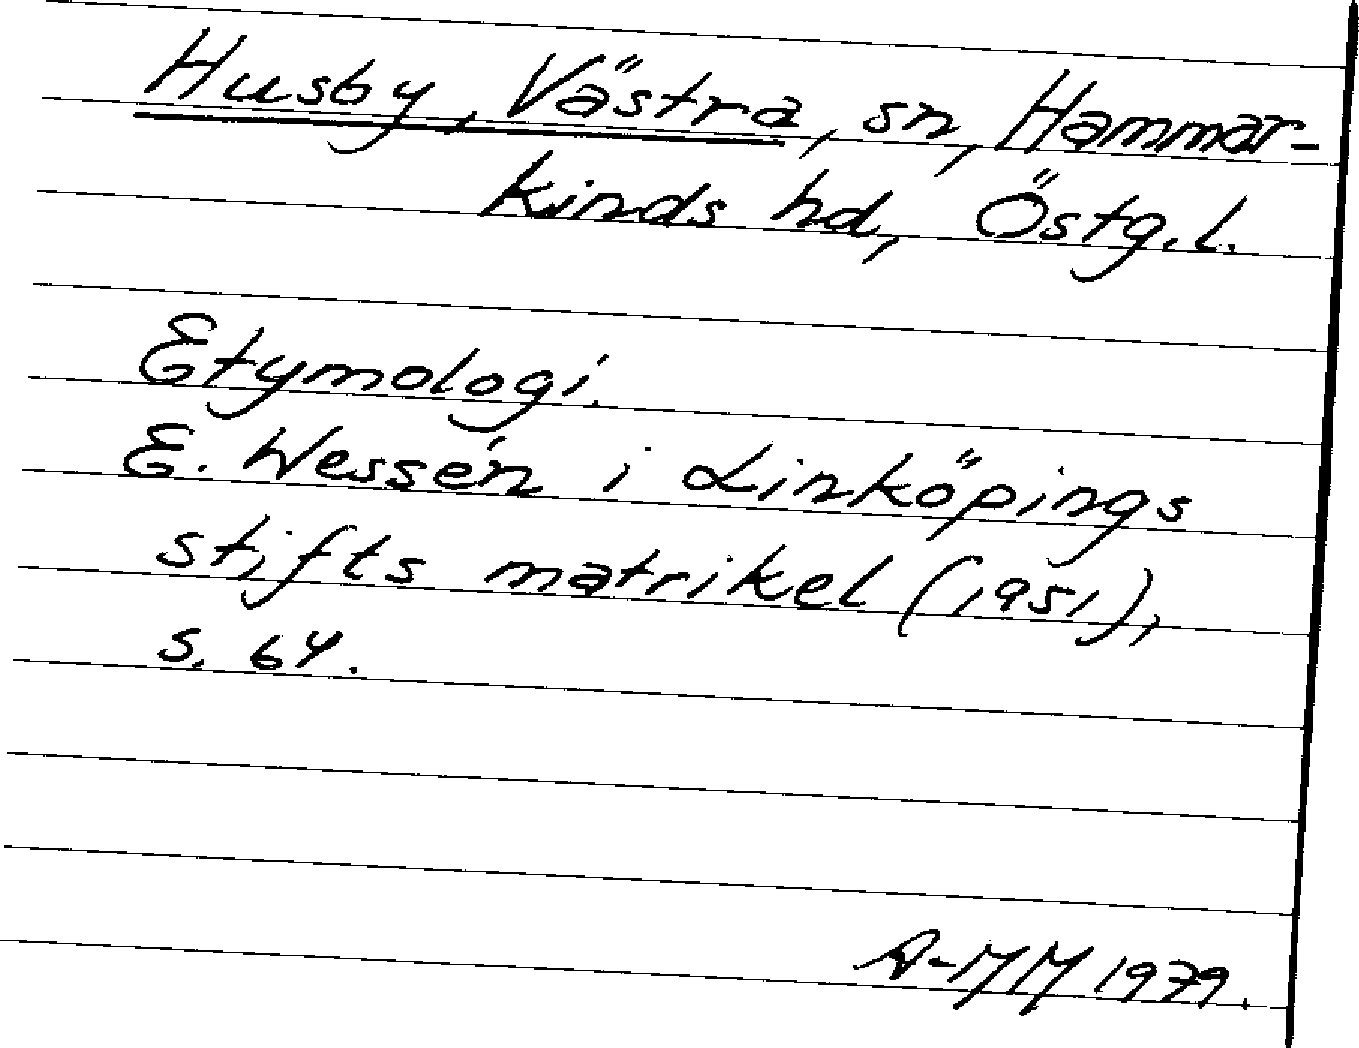 Husby, Västra, sn, Hammar-
kinds hd, Östg.l.
Etymologi.
E. Wessén i Linköpings
stifts matrikel (1951),
s. 64.
A-MM 1979.